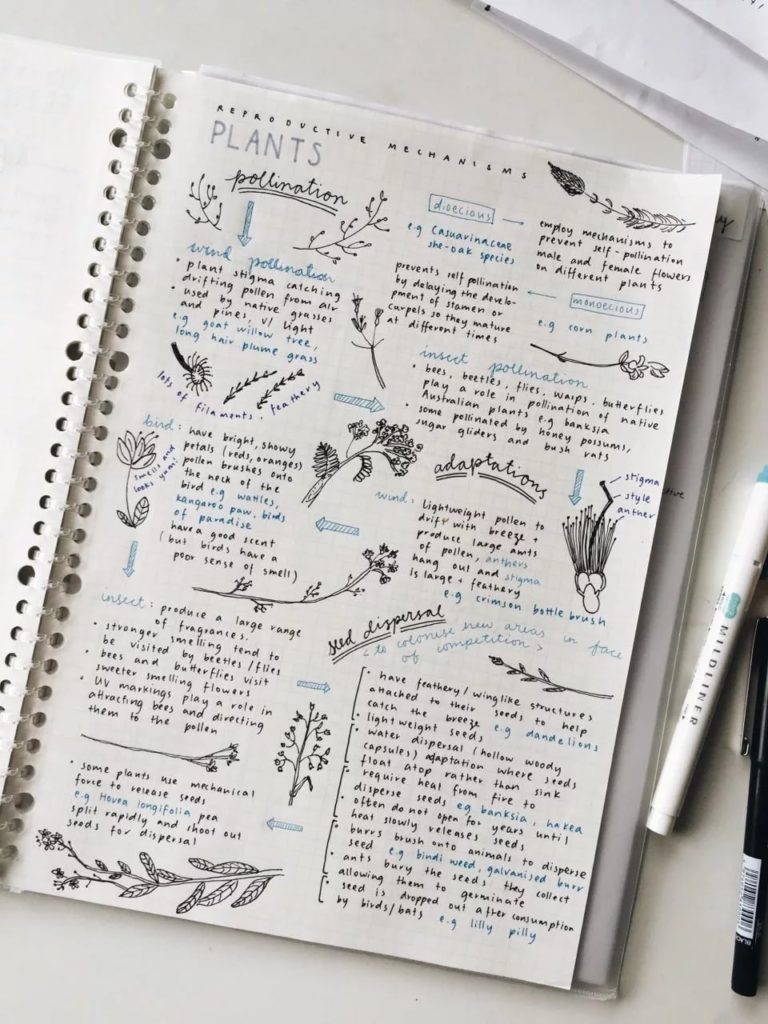 REPRODUCTIVE MECHANISMS
PLANTS
pollination
wind pollination
• plant stigma catching
drifting pollen from air
• used by native grasses
and pines, w/ light
e.g goat willow tree,
long hair plume grass
lots of filaments · feathery
dioecious
e.g casuarinaceae
she-oak species
employ mechanisms to
prevent self-pollination
male and female flowers
on different plants
prevents self pollination
by delaying the develo-
pment of stamen or
carpels so they mature
at different times
monoecious
e.g corn plants
insect pollination
• bees, beetles, flies, wasps, butterflies
play a role in pollination of native
Australian plants e.g banksia
• some pollinated by honey possums,
sugar gliders and bush rats
adaptations
stigma
style
anther
wind: lightweight pollen to
drift with breeze +
produce large amts
of pollen, anthers
hang out and stigma
is large + feathery
e.g crimson bottle brush
bird: have bright, showy
petals (reds, oranges)
pollen brushes onto
the neck of the
bird e.g wattles,
kangaroo paw, birds
of paradise
have a good scent
(but birds have a
poor sense of smell)
smells and
looks yum!
insect: produce a large range
of fragrances.
• stronger smelling tend to
be visited by beetles/flies
• bees and butterflies visit
sweeter smelling flowers
• UV markings play a role in
attracting bees and directing
them to the pollen
seed dispersal
<to colonise new areas in face
of competition>
• have feathery/winglike structures
attached to their seeds to help
catch the breeze e.g dandelions
• lightweight seeds
• water dispersal (hollow woody
capsules) adaptation where seeds
float atop rather than sink
• require heal from fire to
disperse seeds eg banksia, hakea
• often do not open for years until
heat slowly releases seeds
• burrs brush onto animals to disperse
seed e.g bindi weed, galvanised burr
• ants bury the seeds they collect
allowing them to germinate
• seed is dropped out after consumption
by birds/bats e.g lilly pilly
• some plants use mechanical
force to release seeds
e.g Hovea longifolia pea
split rapidly and shoot out
seeds for dispersal
MIDLINER
BLACK